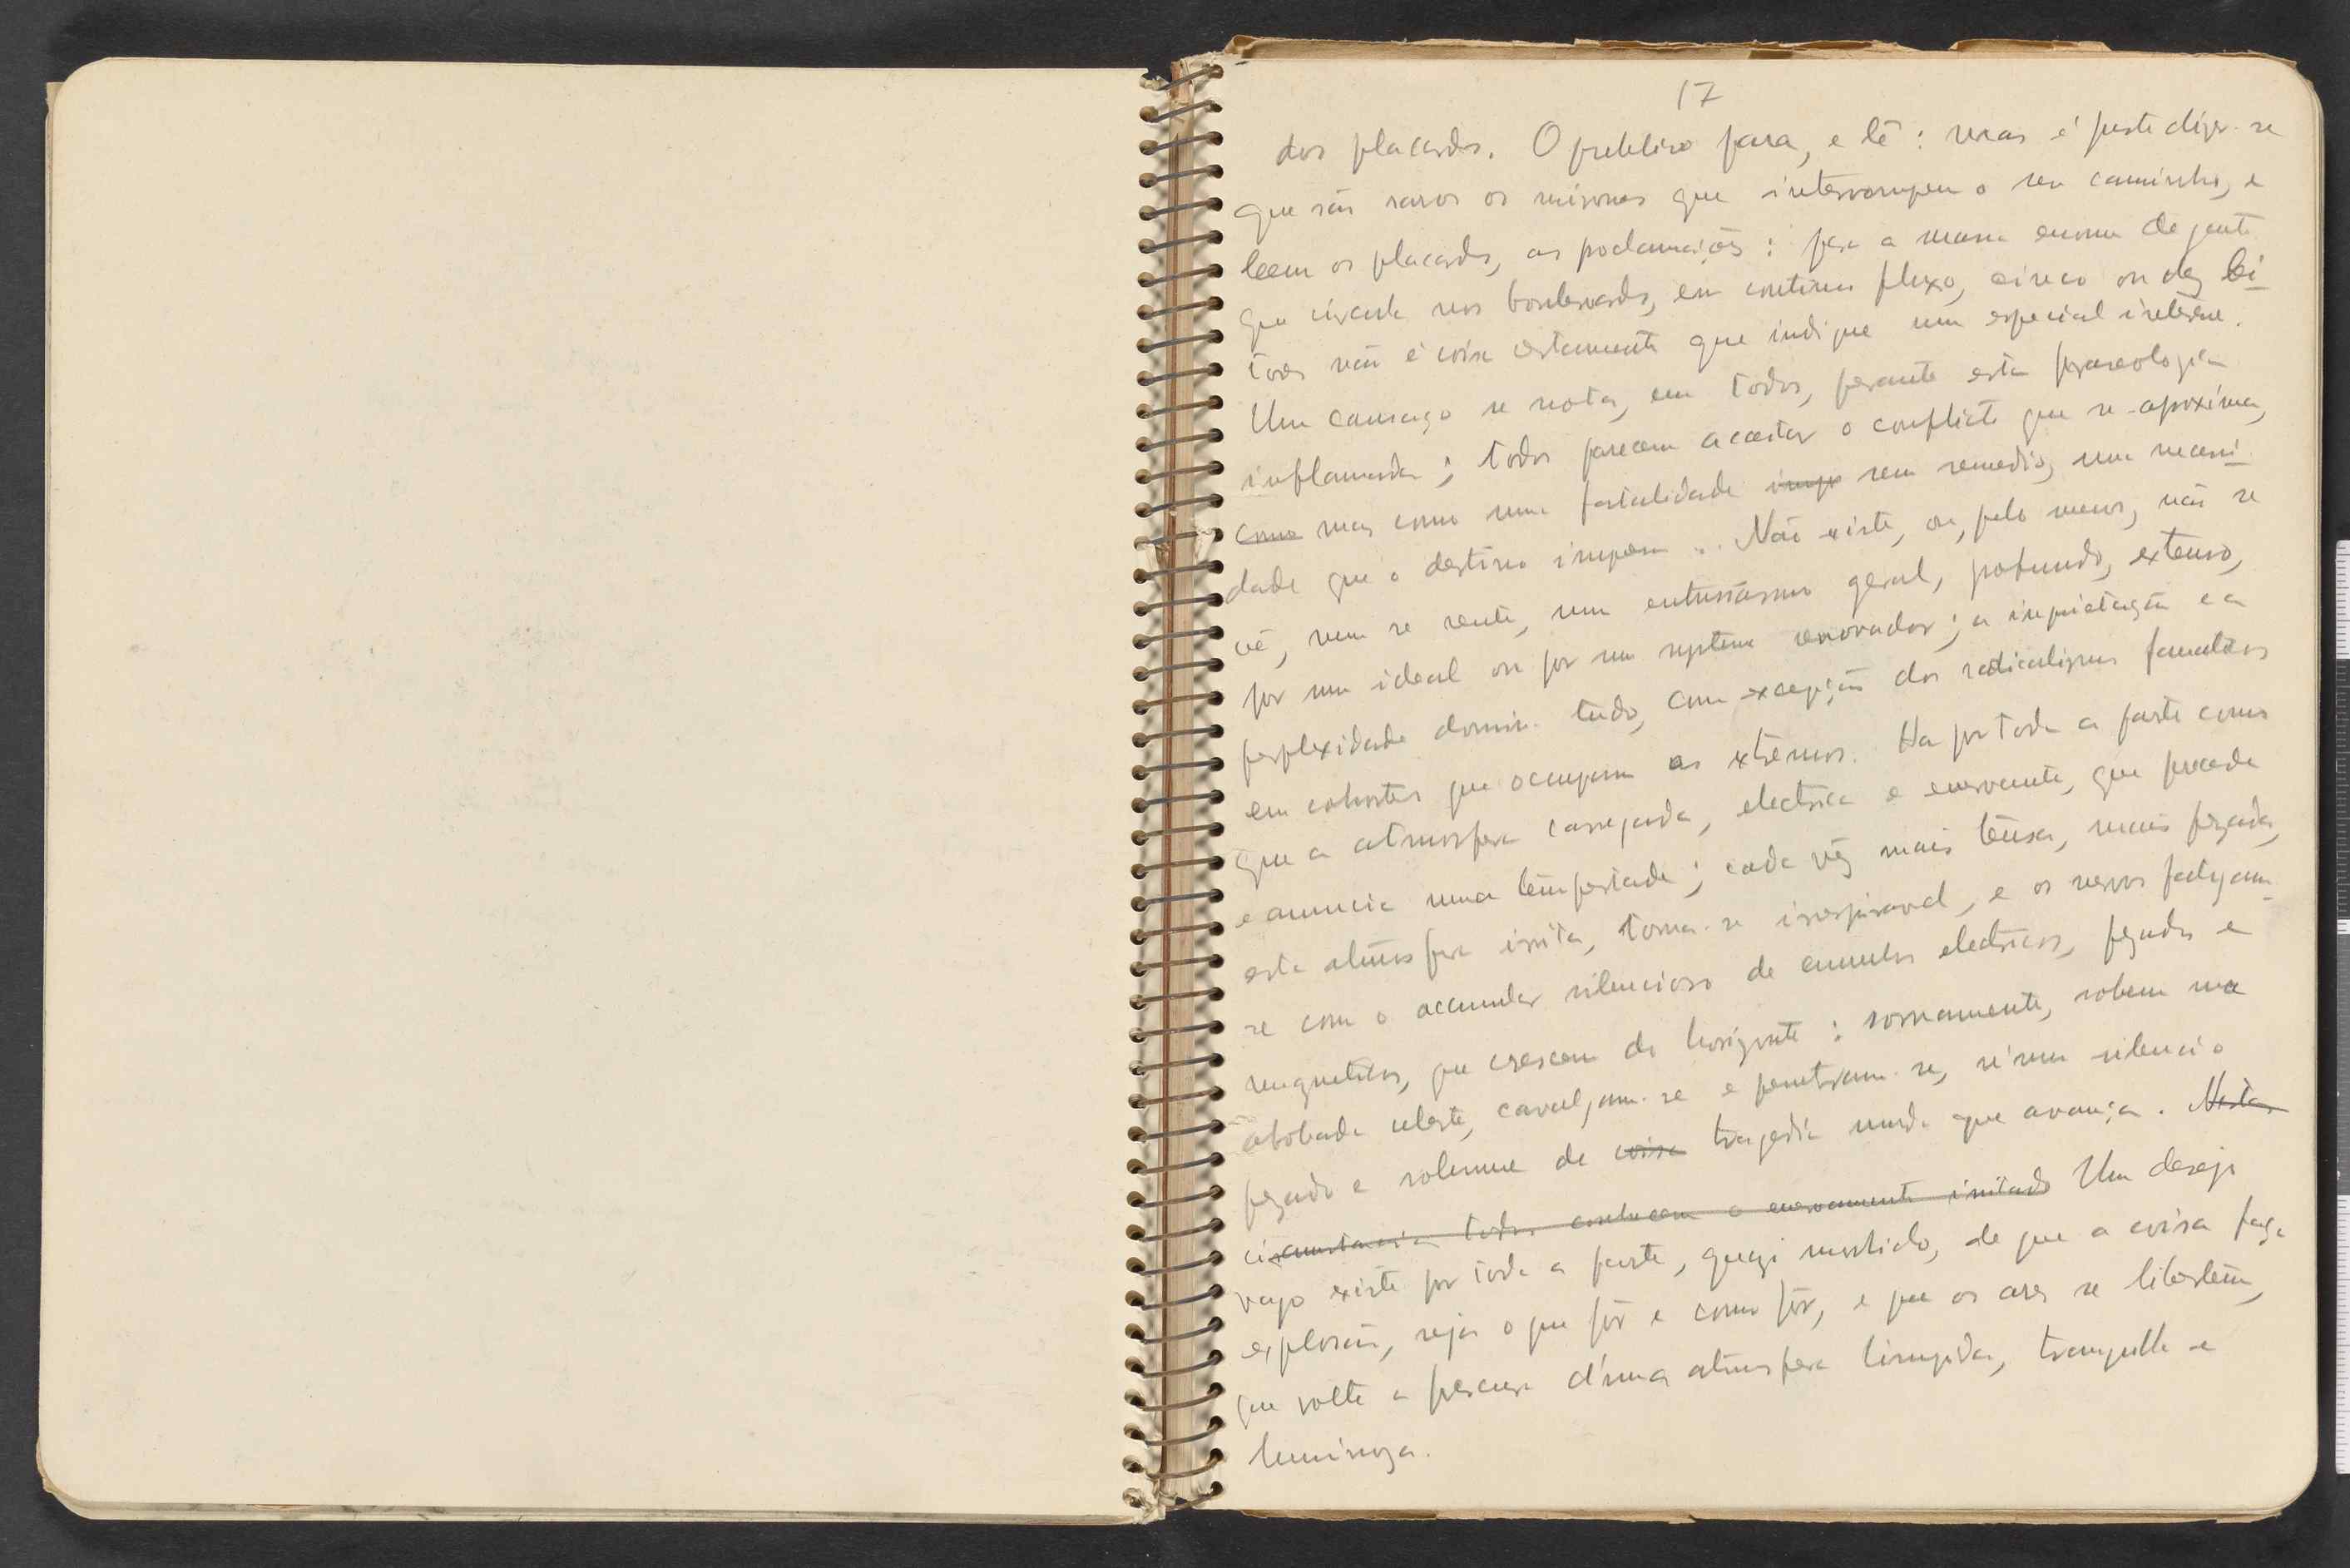 17
dos placards. O publico para, e lê: mas é justo dizer-se
que são raros os mirones que interrompem o seu caminho, e
leem os placards, as proclamações: para a massa enorme de gente
que circula nos boulevards, em continuo fluxo, cinco ou dez lei-
tores não é coisa certamente que indique um especial interêsse.
Um cansaço se nota, em todos, perante esta fraseologia
inflamada; todos parecem aceitar o conflicto que se aproxima,
como mas como uma fatalidade sem remedio, uma necessi-
dade que o destino impoem... Não existe, ou, pelo menos, não se
vê, nem se sente, um entusiasmo geral, profundo, extenso,
por um ideal ou por um systema renovador; a inquietação e a
perplexidade domina tudo, com excepção dos radicalismos fanaticos
em cohortes que occupam os extremos. Ha por toda a parte como
que a atmosfera carregada, electrica e enervante, que precede
e anuncia uma tempestade; cada vêz mais tensa, mais pezada,
esta atmosfera irrita, torna-se irrespiravel, e os nervos fatigam-
se com o accumular silencioso de cumulos electricos, pezados e
magneticos, que crescem do horizonte: sornamente, sobem na
abobada celeste, cavalgam-se e penetram-se, n'um silencio
pezado e solemne de coisa tragedia muda que avança. Nestas
circumstancias todos conhecem o enervamento irritado Um desejo
vago existe por toda a parte, quazi morbido, de que a coisa faça
explosão, seja o que fôr e como fôr, e que os ares se libertem,
que volte a frescura d'uma atmosfera limpida, tranquilla e
luminoza.